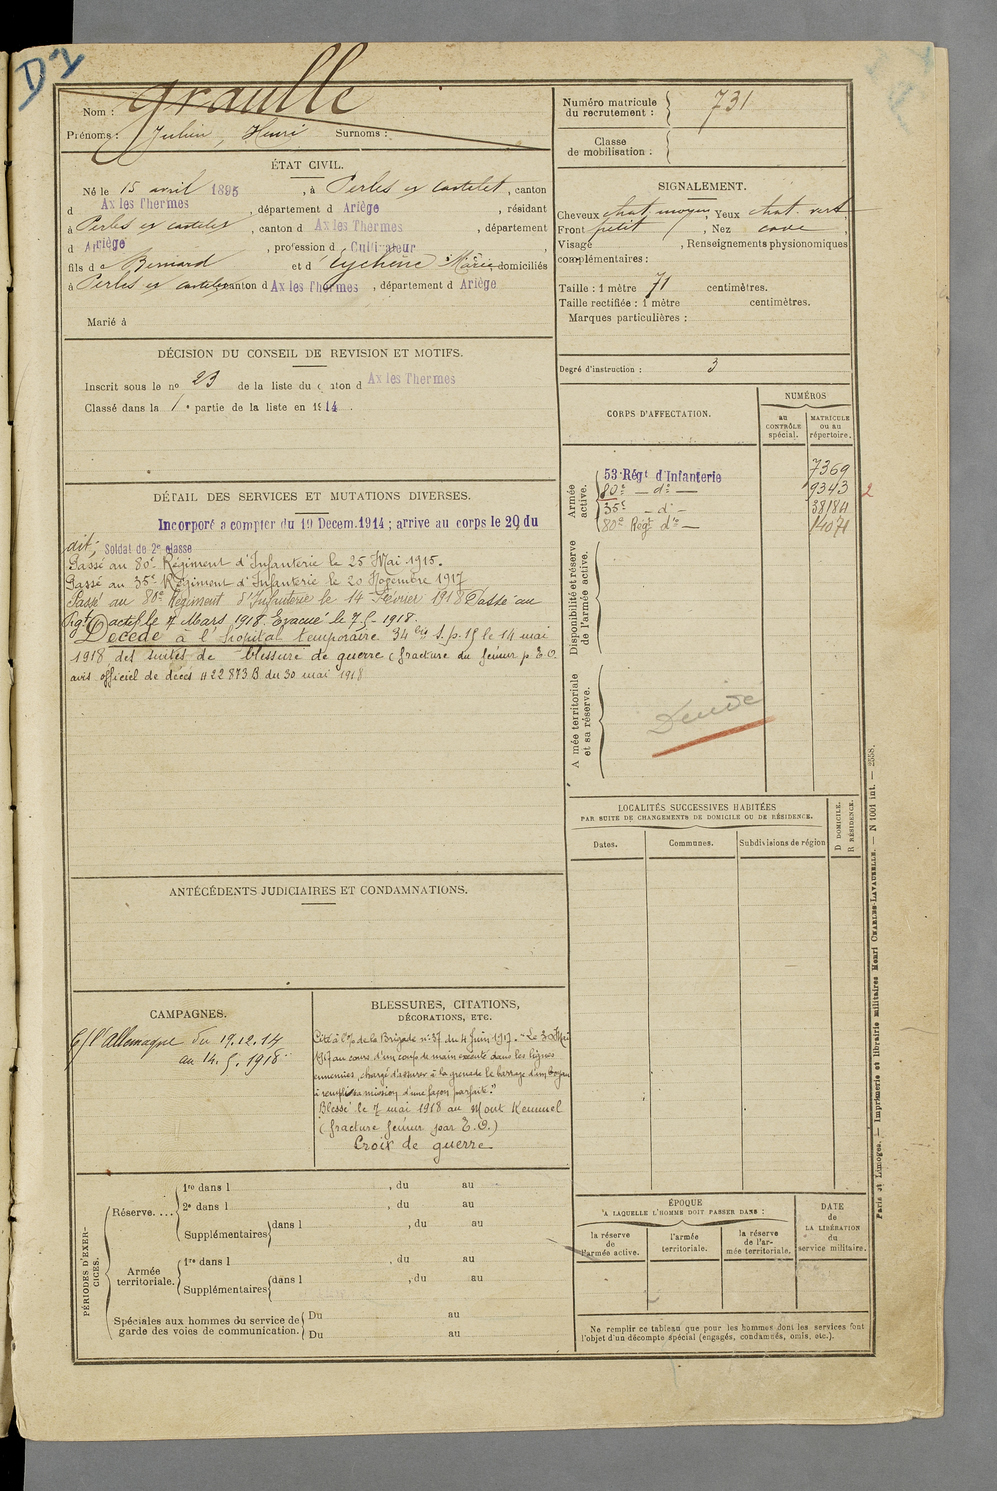 D2
Nom : Graulle
Prénoms : Julien, Henri Surnoms :
ÉTAT CIVIL.
Né le 15 avril 1895, à Perles et Castelet, canton
d Ax les Thermes, département d Ariège, résidant
à Perles et Castelet, canton d Ax les Thermes, département
d Ariège, profession d Cultivateur,
fils de Bernard et d' Eychenne Marie domiciliés
à Perles et Castelet canton d Ax les Thermes, département d Ariège
Marié à
DÉCISION DU CONSEIL DE REVISION ET MOTIFS.
Inscrit sous le no 23 de la liste du canton d Ax les Thermes
Classé dans la 1re partie de la liste en 1914.
DÉTAIL DES SERVICES ET MUTATIONS DIVERSES.
Incorporé a compter du 19 Decem. 1914 ; arrivé au corps le 20 du
dit, Soldat de 2e classe
Passé au 80e Régiment d'Infanterie le 25 Mai 1915.
Passé au 35e Régiment d'Infanterie le 20 Novembre 1917
Passé au 80e Régiment d'Infanterie le 14 Février 1918 Passé au
Rgt actif le 7 Mars 1918. Evacué le 7-5-1918.
Décédé à l'hopital temporaire 34 bis S.p. 15 le 14 mai
1918 des suites de blessure de guerre (fracture du fémur p E.O.
avis officiel de décès 22873 B du 30 mai 1918
ANTÉCÉDENTS JUDICIAIRES ET CONDAMNATIONS.
CAMPAGNES.
C/ l'Allemagne du 19.12.14
au 14.5.1918.
BLESSURES, CITATIONS,
DÉCORATIONS, ETC.
Cité à l'O/ de la Brigade no 57 du 4 Juin 1917. "Le 30 Mai
1917 au cours d'un coup de main exécuté dans les lignes
ennemies, chargé d'assurer à la grenade le barrage d'un boyau
a rempli sa mission d'une façon parfaite."
Blessé le 7 mai 1918 au Mont Kemmel
(fracture fémur par E.O.)
Croix de guerre
PÉRIODES D'EXERCICES.
Réserve....
1re dans l , du au
2e dans l , du au
Supplémentaires dans l , du au
Armée territoriale.
1re dans l , du au
Supplémentaires dans l , du au
Spéciales aux hommes du service de garde des voies de communication.
Du au
Du au
Numéro matricule
du recrutement : 731
Classe
de mobilisation :
SIGNALEMENT.
Cheveux chat. moyen, Yeux chat. vert,
Front petit, Nez cave,
Visage , Renseignements physionomiques
complémentaires :
Taille : 1 mètre 71 centimètres.
Taille rectifiée : 1 mètre centimètres.
Marques particulières :
Degré d'instruction : 3
CORPS D'AFFECTATION.
NUMÉROS
au
CONTRÔLE
spécial.
MATRICULE
ou au
répertoire.
Armée active.
53e Régt d'Infanterie 7369
80e — do — 9343 2
35e — do — 38184
80e Régt do — 14071
Disponibilité et réserve de l'armée active.
Armée territoriale et sa réserve.
LOCALITÉS SUCCESSIVES HABITÉES
PAR SUITE DE CHANGEMENTS DE DOMICILE OU DE RÉSIDENCE.
D DOMICILE.
R RÉSIDENCE.
Dates.
Communes.
Subdivisions de région
ÉPOQUE
A LAQUELLE L'HOMME DOIT PASSER DANS :
la réserve
de
l'armée active.
l'armée
territoriale.
la réserve
de l'ar-
mée territoriale.
DATE
de
LA LIBÉRATION
du
service militaire.
Ne remplir ce tableau que pour les hommes dont les services font
l'objet d'un décompte spécial (engagés, condamnés, omis, etc.).
Paris et Limoges. — Imprimerie et librairie militaires Henri CHARLES-LAVAUZELLE. — N 1001 int. — 2558.